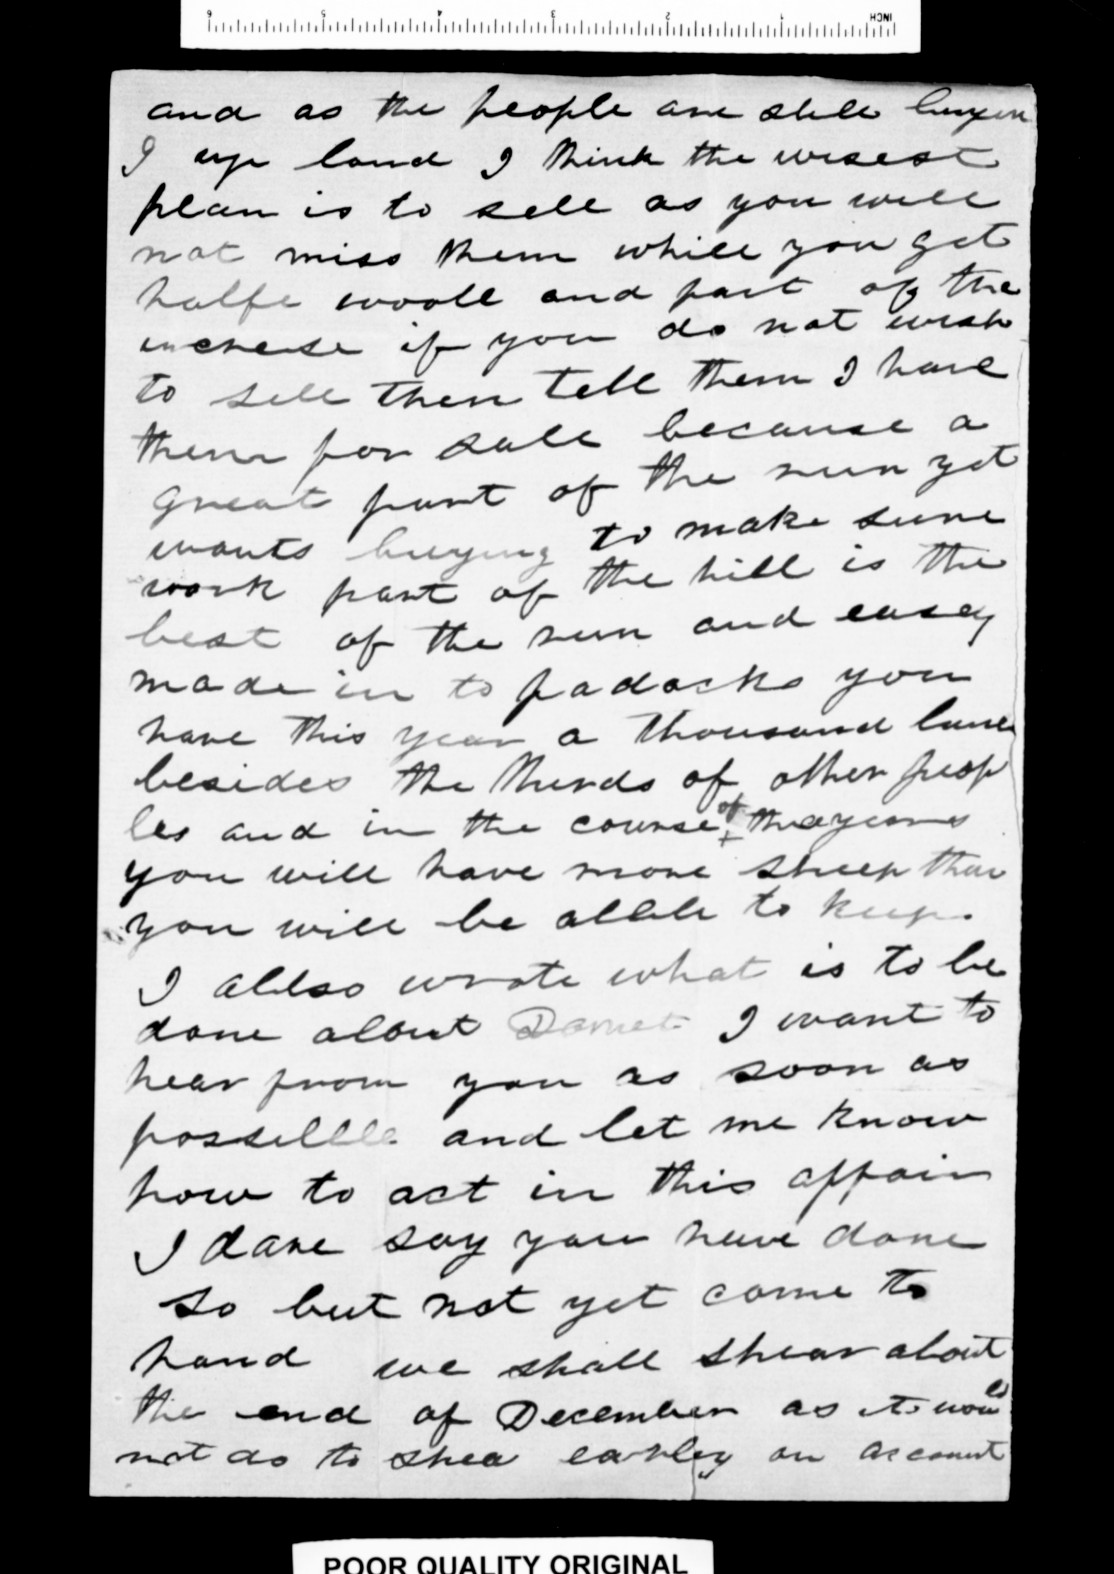 6 5 4 3 2 1 INCH
and as the people are still buyen
g up land I think the wisest
plan is to sell as you will
not miss them while you get
halfe wooll and part of the
increise if you do not wish
to sell then tell them I have
them for sale because a
great part of the run yet
wants buying to make sure
work part of the hill is the
best of the run and easey
made in to padocks you
have this year a thousand
besides the therds of other peop
les and in the course of years
you will have more sheep than
you will be abble to keep.
I allso wrote what is to be
done about Domet I want to
hear from you as soon as
possebble and let me know
how to act in this affair
I dare say you have done
so but not yet come to
hand we shall shear about
the end of December as it woul
not do to shea earley on account
POOR QUALITY ORIGINAL